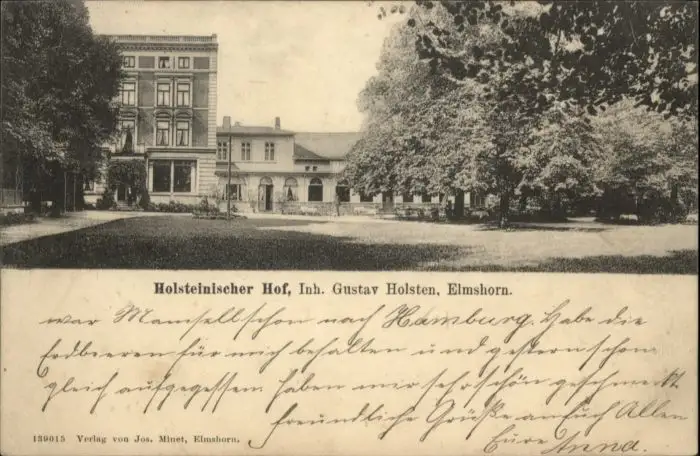 Holsteinischer Hof, Inh. Gustav Holsten, Elmshorn.
war Mamsell schon nach Hamburg. Habe die
Erdbeeren für mich behalten und gestern schon
gleich aufgegessen. Haben mir sehr schön geschmeckt
freundliche Grüße an Euch Allen
Eure Anna.
139015 Verlag von Jos. Minet, Elmshorn.